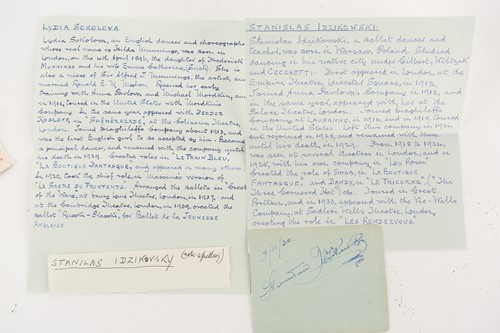 LYDIA SOKOLOVA
Lydia Sokolova, an English dancer and choreographer
whose real name is Hilda Munnings, was born in
London, on the 4th April, 1896, the daughter of Frederick
Munnings and his wife Emma Catherine,
is also a niece of Sir Alfred J. Munnings, the artist, and
married Ronald E. N. Mahon. Received her early
training with Anna Pavlova and Michael Mordkin, and
in 1911, toured in the United States with Mordkin's
Company. In the same year appeared with Teodor
in "Scheherazade", at the Coliseum Theatre,
London. Joined Diaghileff's Company about 1913, and
was the first English girl to be accepted by him. Became
a principal dancer, and remained with the company until
his death in 1929. Created roles in "Le Train Bleu,"
"La Boutique Fantasque," and appeared in many others.
In 1920, took the chief role in Massine's version of
"Le Sacre du Printemps". Arranged the ballets in "Great
at Drury Lane Theatre, London, in 1927, and
at the Cambridge Theatre, London, in 1939, created the
ballet "Russki-Plasski", for Ballet de la Jeunesse
Anglaise.
STANISLAS IDZIKOWSKI.
Stanislas Idzikowski, a ballet dancer and
teacher, was born in Warsaw, Poland. Studied
dancing in his native city under Gilbert,
and Cecchetti. First appeared in London, at the
Empire Theatre, Leicester Square, in 1912.
Joined Anna Pavlova's Company, in 1913, and
in the same year, appeared with her at the
Palace Theatre, London. Joined Diaghileff's
Company at Lausanne, in 1915, and in 1915, toured
in the United States. Left this company in 1924,
but rejoined in 1925, and remained with them
until his death in 1929. From 1928 to 1930,
was seen at several theatres in London, and on
tour, with his own company in "Les Roses"
Created the role of Snob, in "La Boutique
Fantasque", and Dandy, in "Le Tricorne" ("The
Three-Cornered Hat") etc. Toured in Great
Britain, and in 1933, appeared with the Vic-Wells
Company, at Sadlers Wells Theatre, London,
creating the role in "Les Rendezvous.
STANILAS IDZIKOVSKY (note spelling)
9/11/20.
Stanislas Idzikowsky